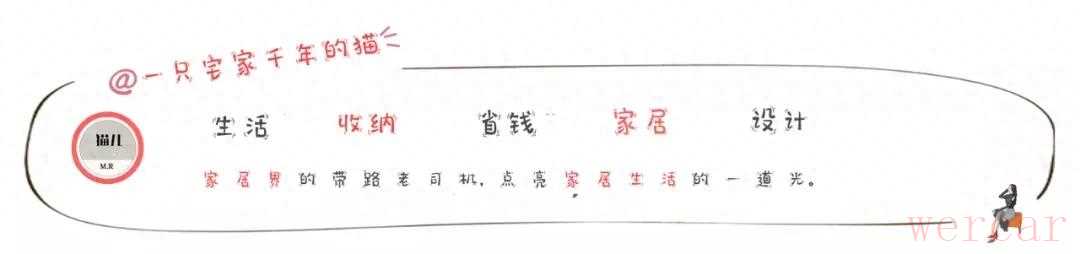 @一只宅家千年的猫
生活 收纳 省钱 家居 设计
猫儿
M.R
家居界的带路老司机,点亮家居生活的一道光。
wercar